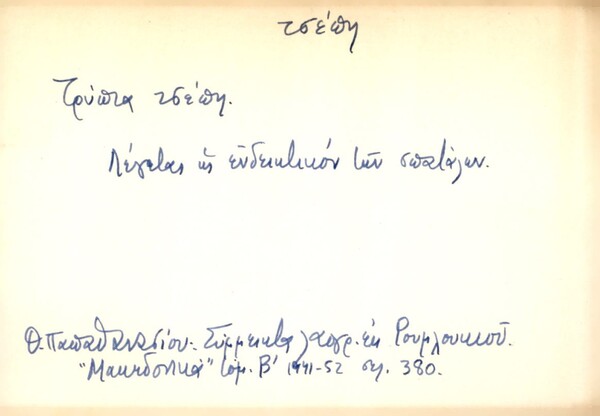 τσέπη
Τρύπα τσέπη.
Λέγεται ὡς ἐνδεικτικόν τῶν σπατάλων.
Θ. Παπαθανασίου. Σύμμεικτα λαογρ. ἐκ Ρουμλουκιοῦ.
"Μακεδονικά" τόμ. Β' 1941-52 σελ. 380.